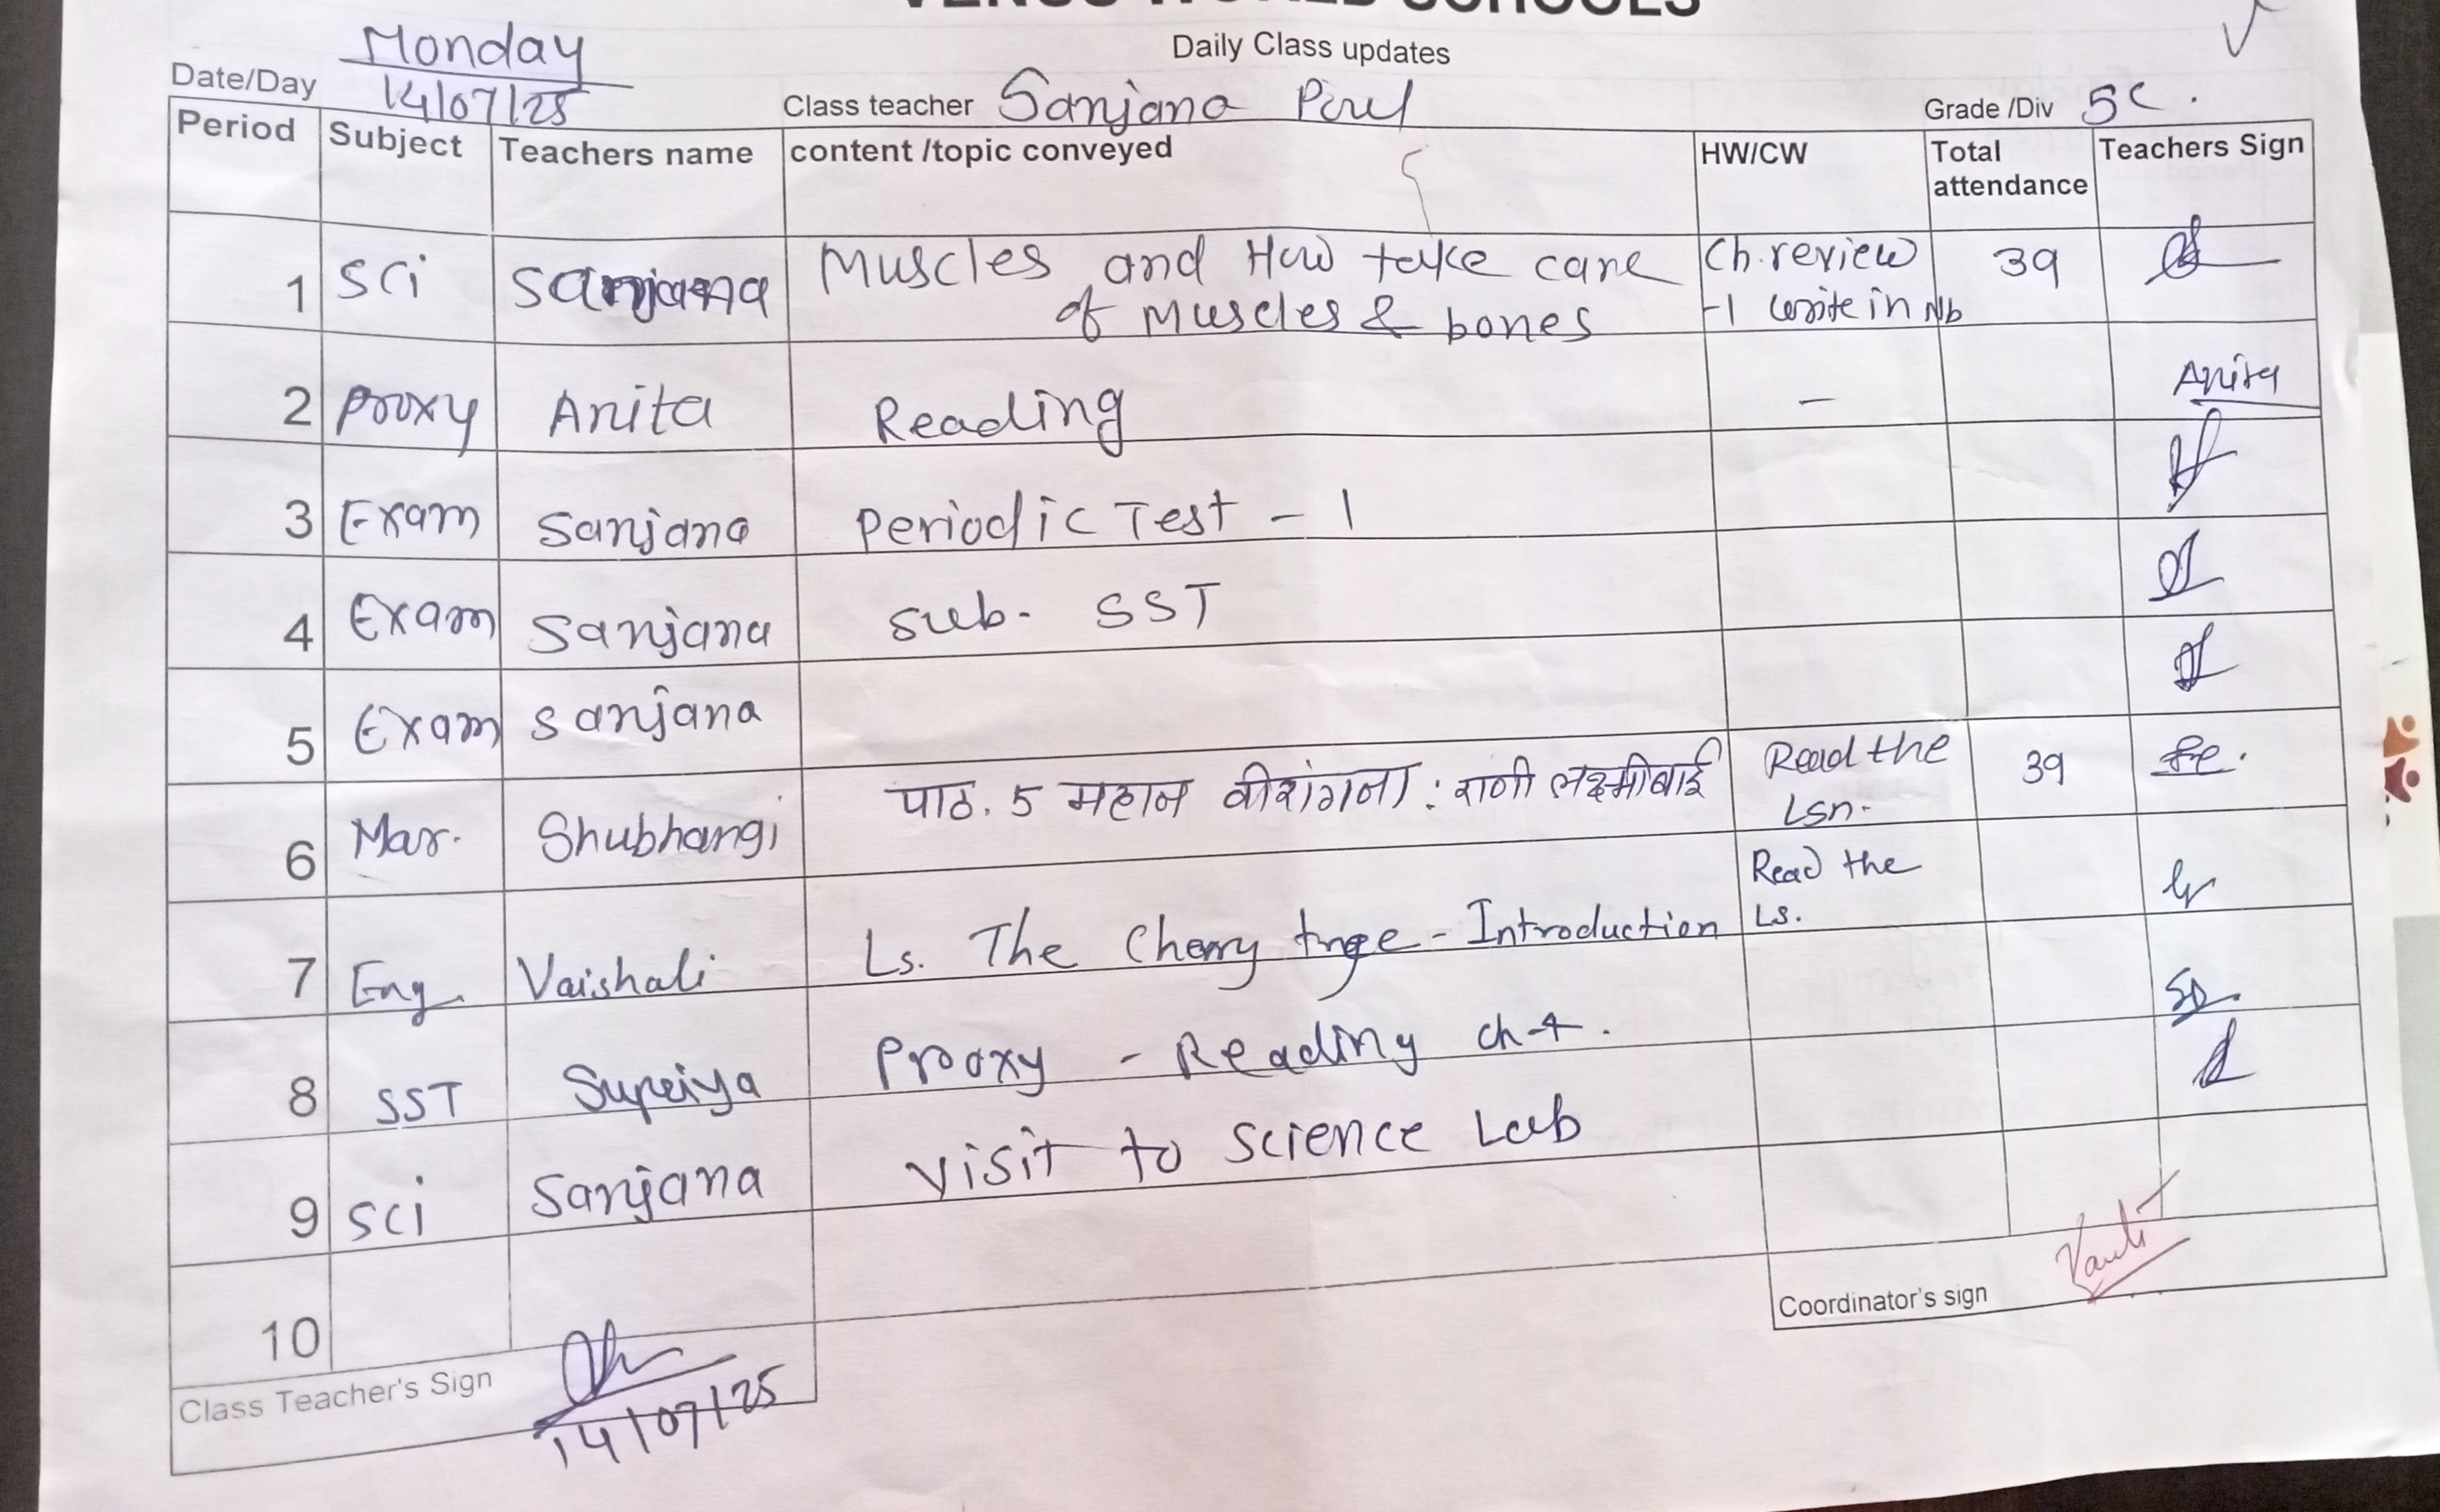 Daily Class updates
Date/Day Monday
14/07/25
Class teacher Sanjana
Grade /Div 5C.
Period Subject Teachers name content /topic conveyed HW/CW Total attendance Teachers Sign
1 Sci Sanjana Muscles and How take care Ch.review 39
of Muscles & bones -1 write in Nb
2 Proxy Anita Reading – Anita
3 Exam Sanjana Periodic Test - 1
4 Exam Sanjana Sub- SST
5 Exam Sanjana
6 Mar. Shubhangi पाठ. 5 महान वीरांगना : राणी लक्ष्मीबाई Read the Lsn. 39
7 Eng. Vaishali Ls. The Cherry tree - Introduction Read the Ls.
8 SST Supriya Proxy - Reading ch-4.
9 Sci Sanjana Visit to Science Lab
10
Coordinator's sign
Class Teacher's Sign
14/07/25